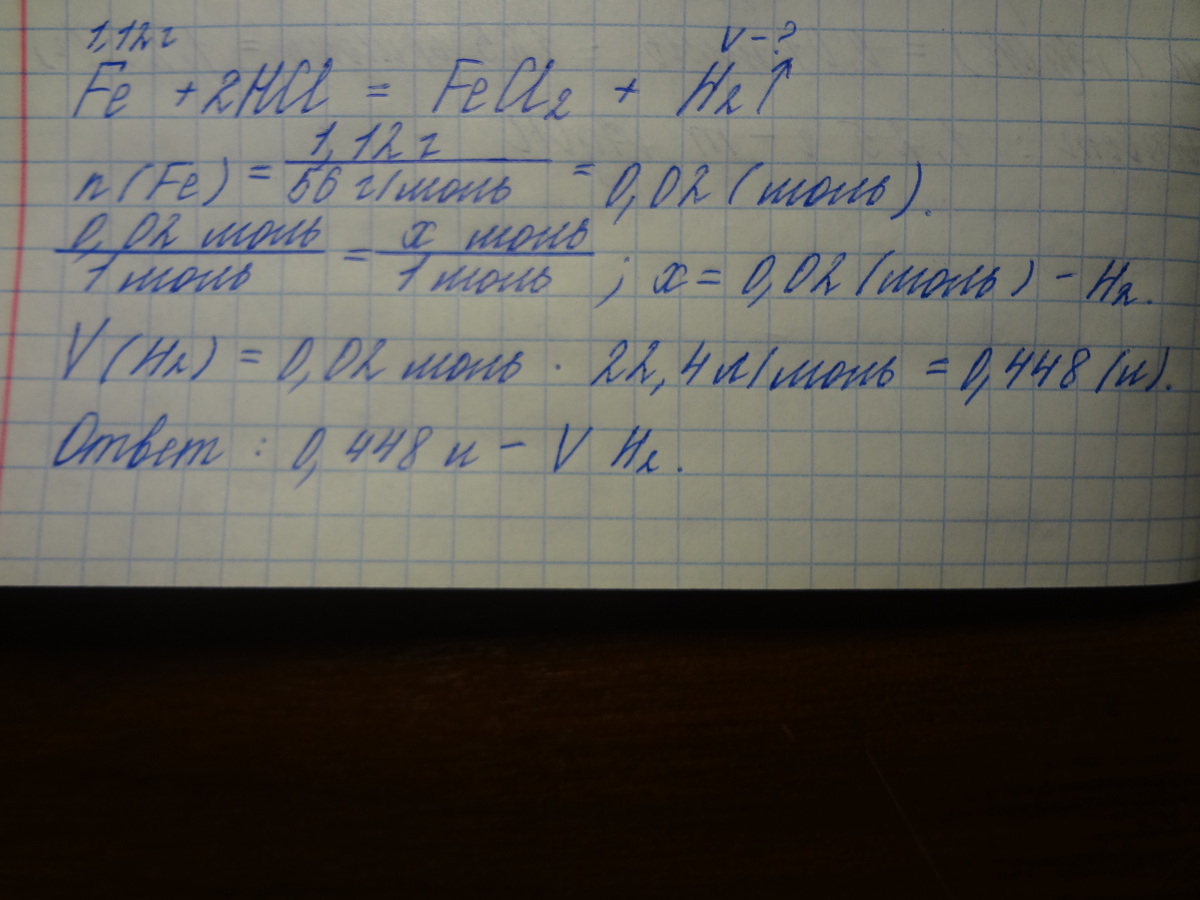 1,12 г V - ?
Fe + 2HCl = FeCl₂ + H₂↑
n(Fe) = 1,12 г / 56 г/моль = 0,02 (моль).
0,02 моль / 1 моль = x моль / 1 моль ; x = 0,02 (моль) - H₂.
V(H₂) = 0,02 моль · 22,4 л/моль = 0,448 (л).
Ответ : 0,448 л - V H₂.